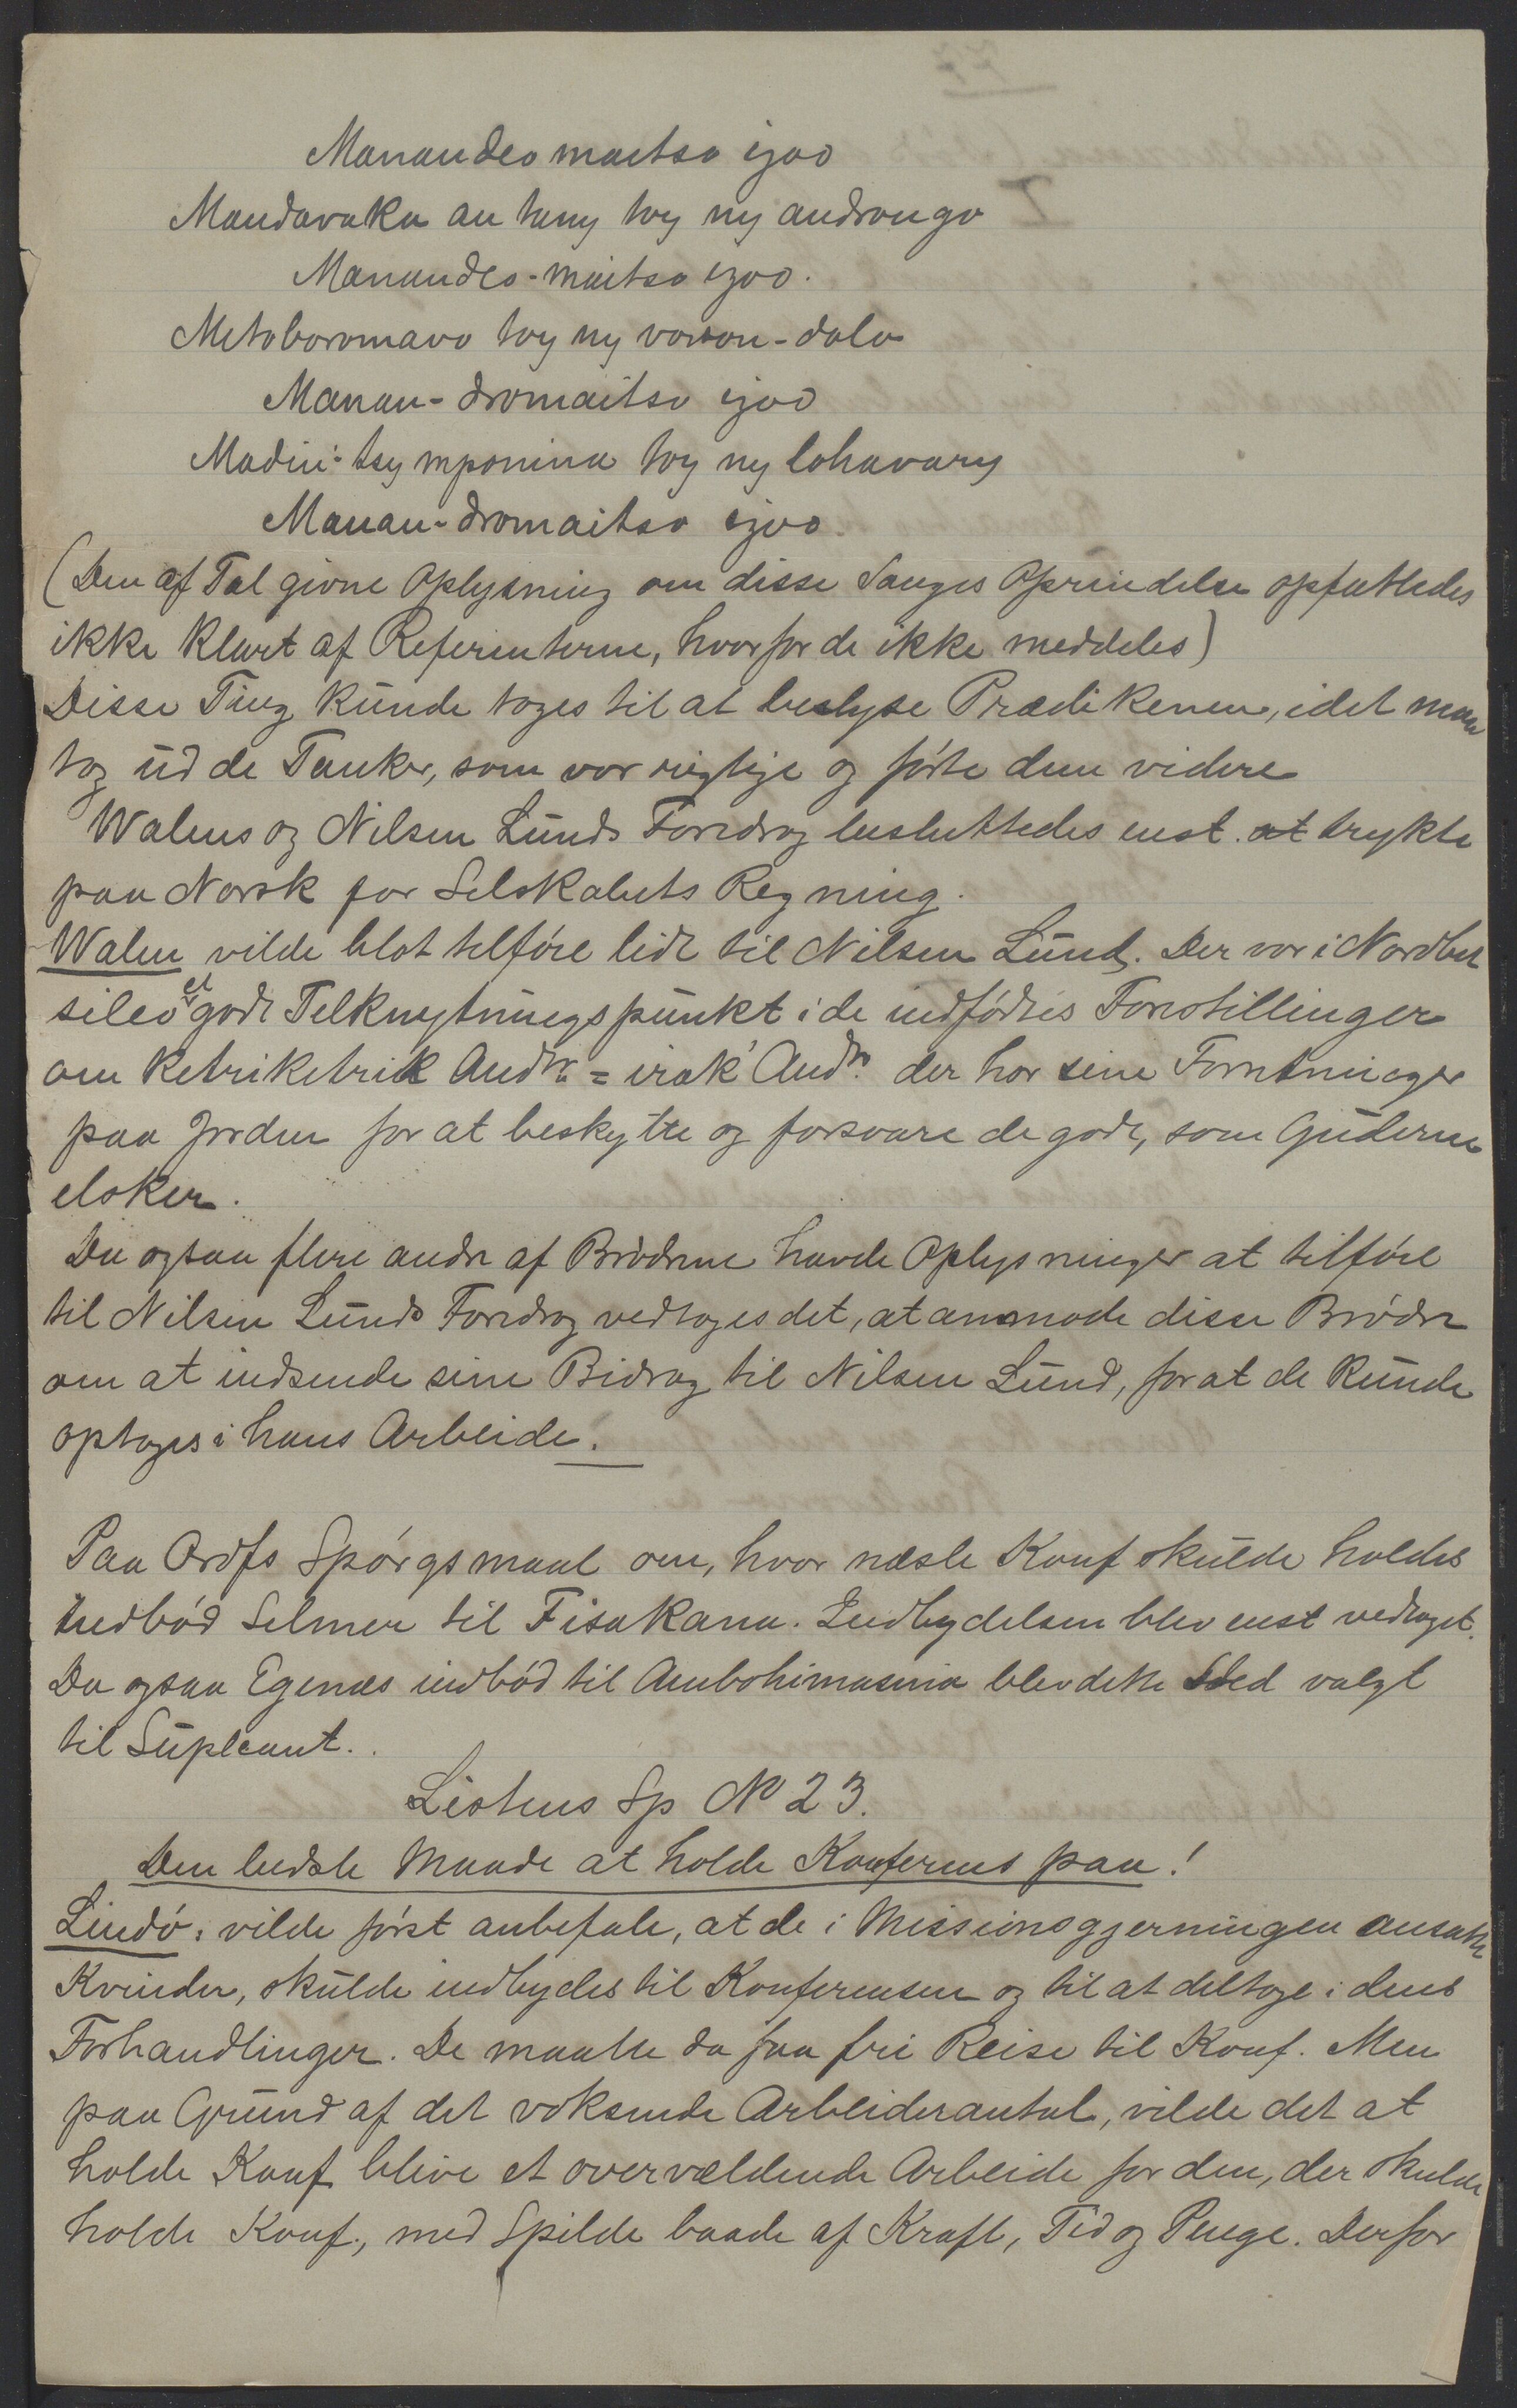 Manandeo maitso izao
Mandavaka an tany toy ny androngo
Manandeo-maitso izao.
Metaboromavo toy ny voron-dolo
Manan-dromaitso izao
Madini-tsy mponina toy ny lohavary
Manan-dromaitso izao
(Den af Tal givne Oplysning om disse Sanges Oprindelse opfattedes
ikke klart af Referenterne, hvorfor de ikke meddeles)
Disse Ting kunde tages til at beslyse Prædikenen, idet man
tog ud de Tanker, som var rigtige og førte dem videre
Walens og Nilsen Lunds Foredrag besluttedes enst. at trykte
paa Norsk for Selskabets Regning.
Walen vilde blot tilføie lidt til Nilsen Lund. Der var i Nordbet
sileo et godt Tilknytningspunkt i de indfødtes Forestillinger
om Ketriketrik Andra = irak' Andra der har sine Forretninger
paa Jorden for at beskytte og forsvare de gode, som Guderne
elsker.
Da ogsaa flere andre af Brødrene havde Oplysninger at tilføie
til Nilsen Lunds Foredrag vedtoges det, at anmode disse Brødre
om at indsende sine Bidrag til Nilsen Lund, for at de kunde
optages i hans Arbeide.
Paa Ordfs Spørgsmaal om, hvor næste Konf skulde holdes
indbød Selmer til Fisakana. Indbydelsen blev enst vedtaget.
Da ogsaa Egenæs indbød til Ambohimasina blev dette Sted valgt
til Supleant.
Listens Sp No 23.
Den bedste Maade at holde Konferens paa!
Lindø: vilde først anbefale, at de i Missionsgjerningen ansatte
Kvinder, skulde indbydes til Konferensen og til at deltage i dens
Forhandlinger. De maatte da faa fri Reise til Konf. Men
paa Grund af det voksende Arbeiderantal, vilde det at
holde Konf blive et overvældende Arbeide for den, der skulde
holde Konf., med Spilde baade af Kraft, Tid og Penge. Derfor